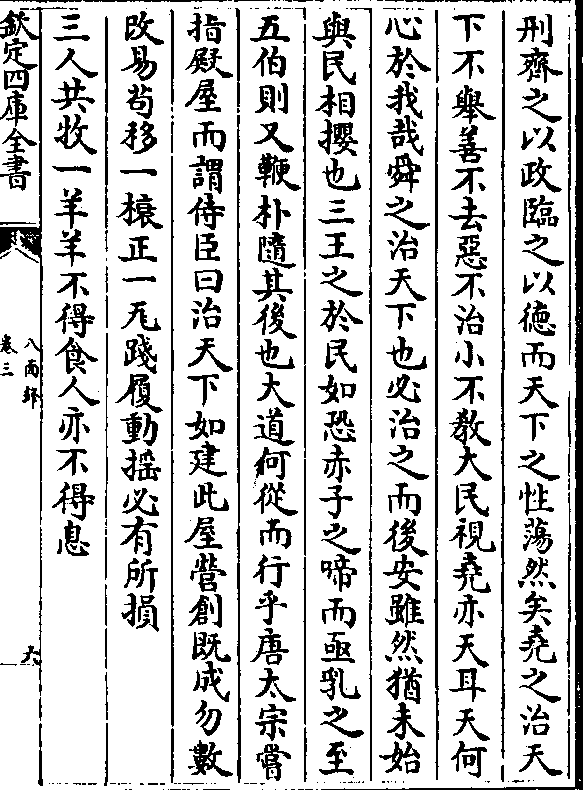 刑齊之以政臨之以德而天下之性蕩然矣堯之治天
下不舉善不去惡不治小不教大民視堯亦天耳天何
心於我哉舜之治天下也必治之而後安雖然猶未始
與民相攖也三王之於民如恐赤子之啼而亟乳之至
五伯則又鞭朴隨其後也大道何從而行乎唐太宗嘗
指殿屋而謂侍臣曰治天下如建此屋營創既成勿數
改易苟移一榱正一瓦踐履動揺必有所損
三人共牧一羊羊不得食人亦不得息
欽定四庫全書
八面鋒
卷三